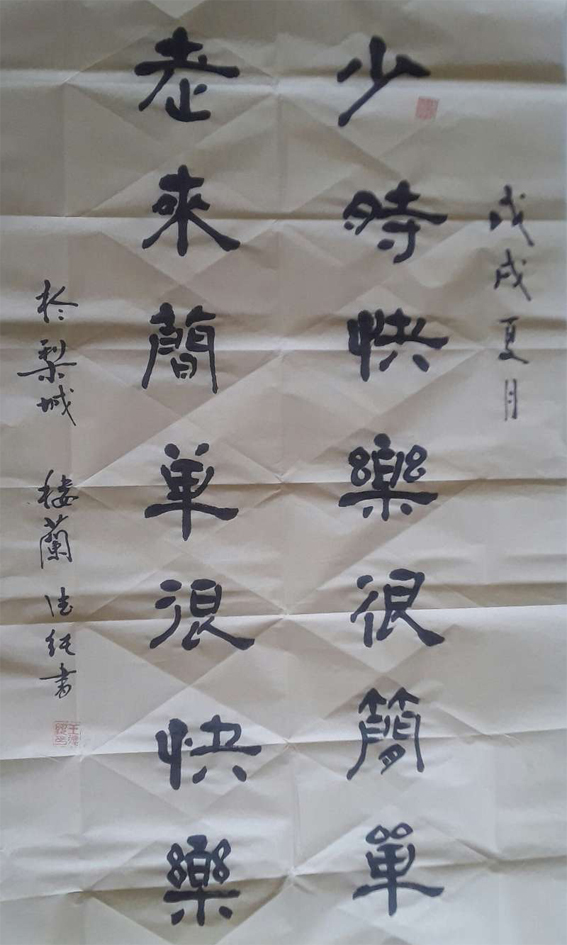 戊戌夏月
少時快樂很簡單
老來簡单很快樂
於梨城 楼蘭 法純書